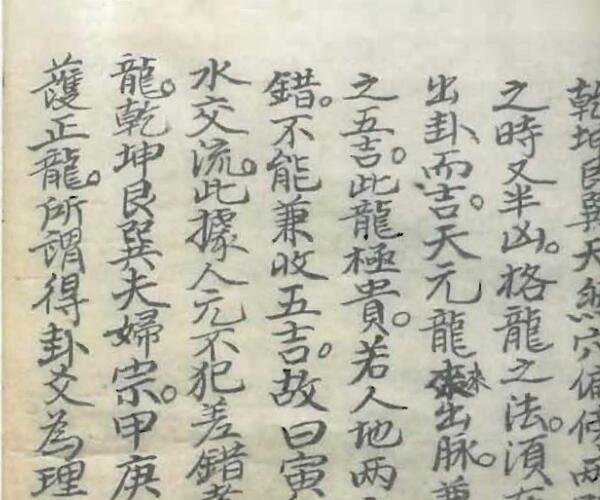 乾坤艮巽天然穴偏傍兩
之時又半凶。格龍之法。須
出卦而吉。天元龍來出脈。兼
之五吉。此龍極貴。若人地两
錯。不能兼收五吉。故曰寅
水交流。此據人元不犯差錯者
龍。乾坤艮巽夫婦宗。甲庚
護正龍。所謂得卦爻為理